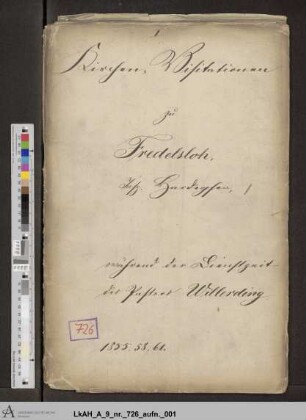 Kirchen-Visitationen
zu
Fredelsloh,
Hardegsen,
während der Dienstzeit
des Pastors Willerding
726
1855. 58. 61.
LkAH_A_9_nr._726_aufn._001